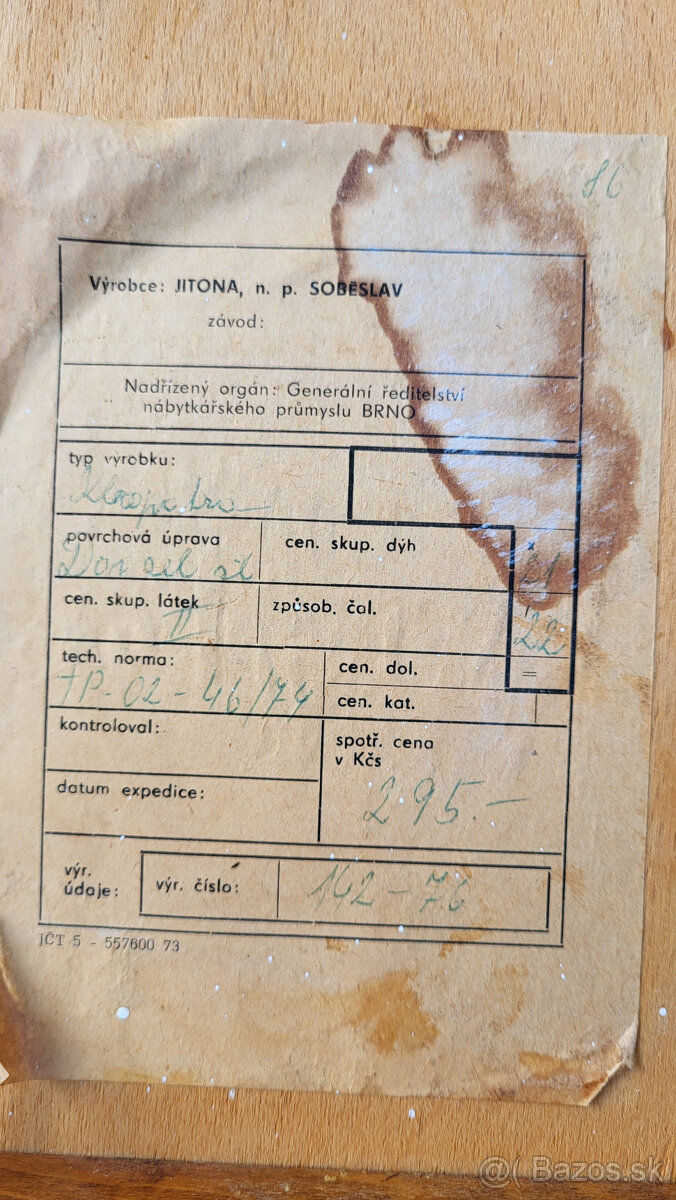 86
Výrobce: JITONA, n. p. SOBĚSLAV
závod:
Nadřízený orgán: Generální ředitelství
nábytkářského průmyslu BRNO
typ výrobku:
Kleopatra
povrchová úprava
cen. skup. dýh
x
21
cen. skup. látek
II
způsob. čal.
22
tech. norma:
TP-02-46/74
cen. dol.
=
cen. kat.
kontroloval:
spotř. cena
v Kčs
295.-
datum expedice:
výr.
údaje:
výr. číslo:
142-76
JČT 5 - 557600 73
@( Bazos.sk